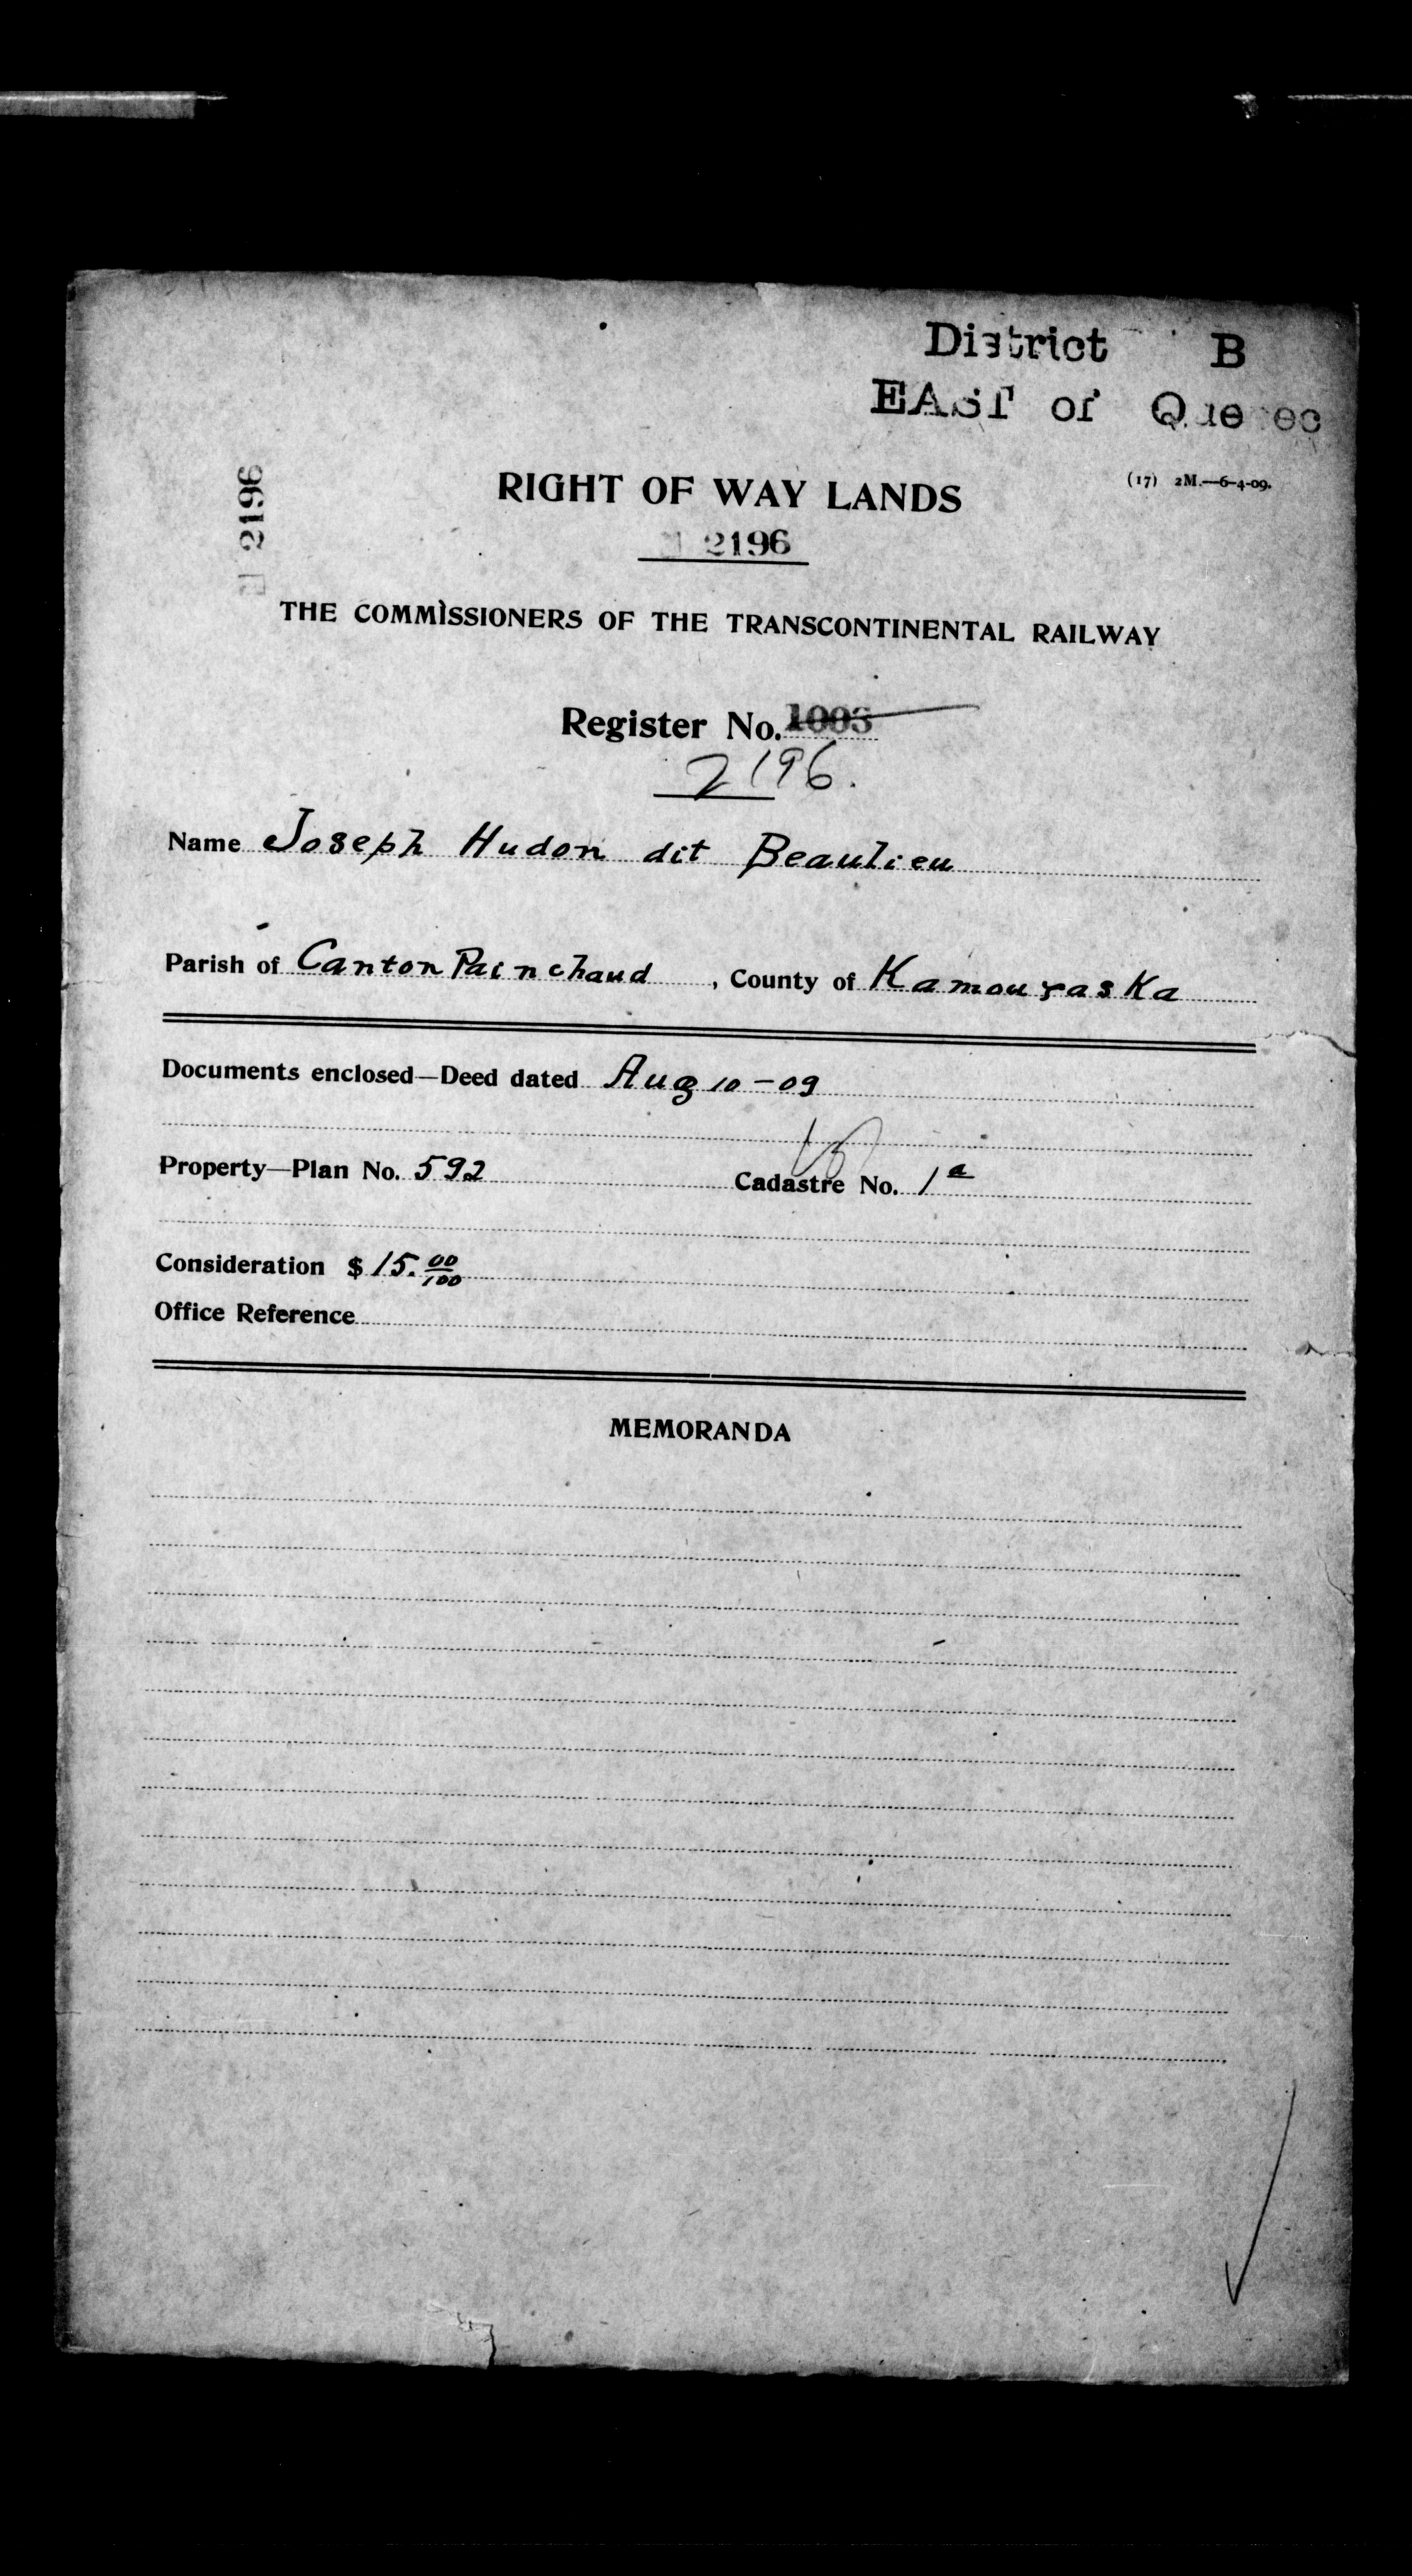 District B
EAST of Quebec
(17) 2M.—6-4-09.
2196
RIGHT OF WAY LANDS
2196
THE COMMISSIONERS OF THE TRANSCONTINENTAL RAILWAY
Register No.
2196.
Name Joseph Hudon dit Beaulieu
Parish of Canton Painchaud , County of Kamouraska
Documents enclosed—Deed dated Aug 10-09
Property—Plan No. 592 Cadastre No. 1a
Consideration $ 15.00/100
Office Reference
MEMORANDA